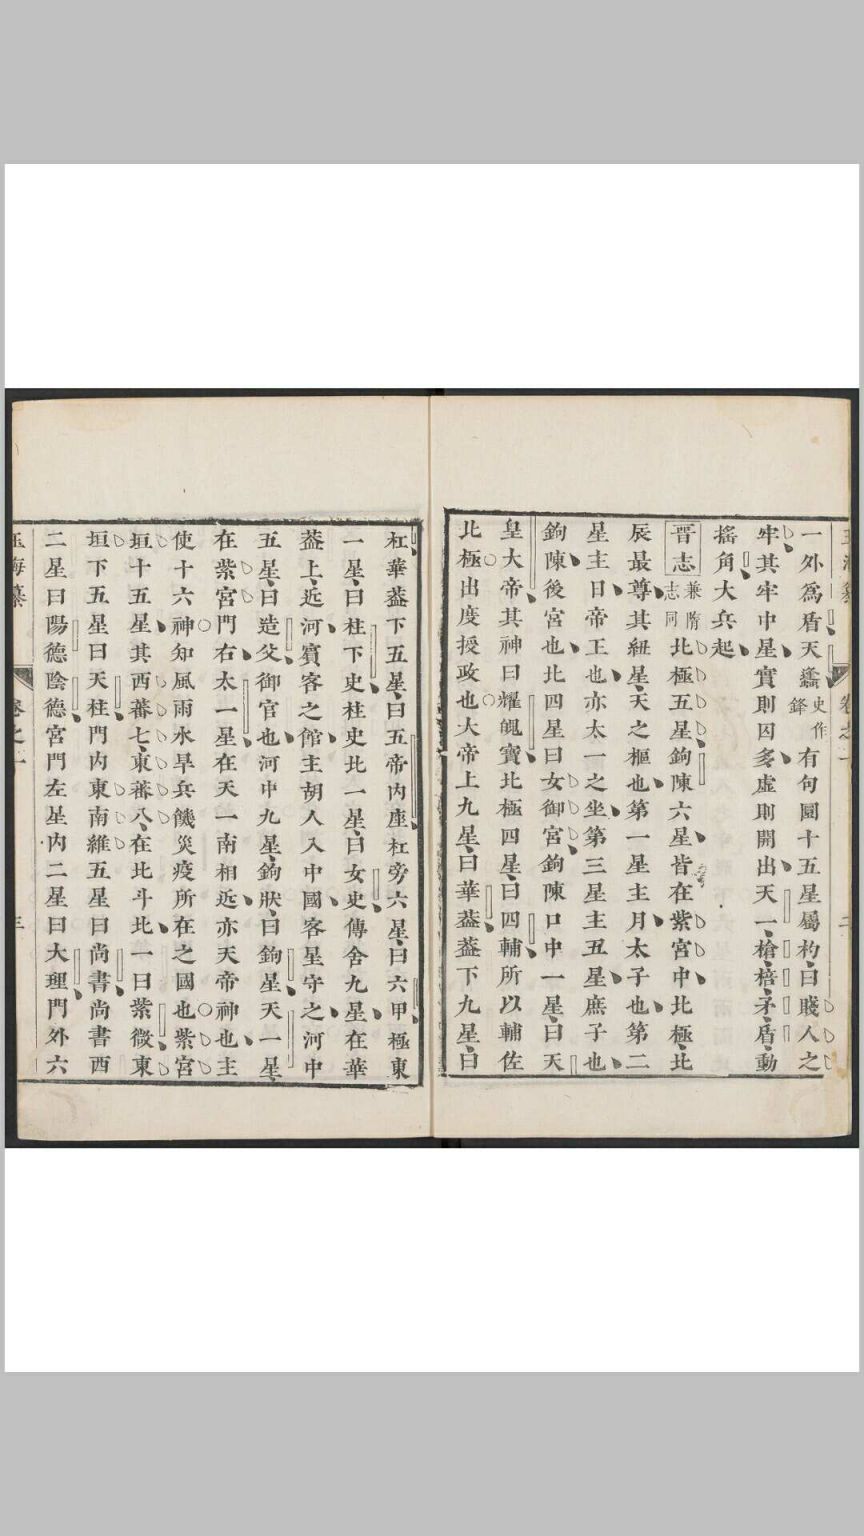 一外爲盾天蠭史作鋒有句圜十五星屬杓曰賤人之
牢其牢中星實則囚多虛則開出天一槍棓矛盾動
搖角大兵起
晉志兼隋志同北極五星鉤陳六星皆在紫宮中北極北
辰最尊其紐星天之樞也第一星主月太子也第二
星主日帝王也亦太一之坐第三星主五星庶子也
鉤陳後宮也北四星曰女御宮鉤陳口中一星曰天
皇大帝其神曰耀魄寶北極四星曰四輔所以輔佐
北極出度授政也大帝上九星曰華葢葢下九星曰
杠華葢下五星曰五帝內座杠旁六星曰六甲極東
一星曰柱下史柱史北一星曰女史傳舍九星在華
葢上近河賓客之館主胡人入中國客星守之河中
五星曰造父御官也河中九星鉤狀曰鉤星天一星
在紫宮門右太一星在天一南相近亦天帝神也主
使十六神知風雨水旱兵饑災疫所在之國也紫宮
垣十五星其西蕃七東蕃八在北斗北一曰紫微東
垣下五星曰天柱門內東南維五星曰尚書尚書西
二星曰陽德陰德宮門左星內二星曰大理門外六
玉海纂 卷之一 三